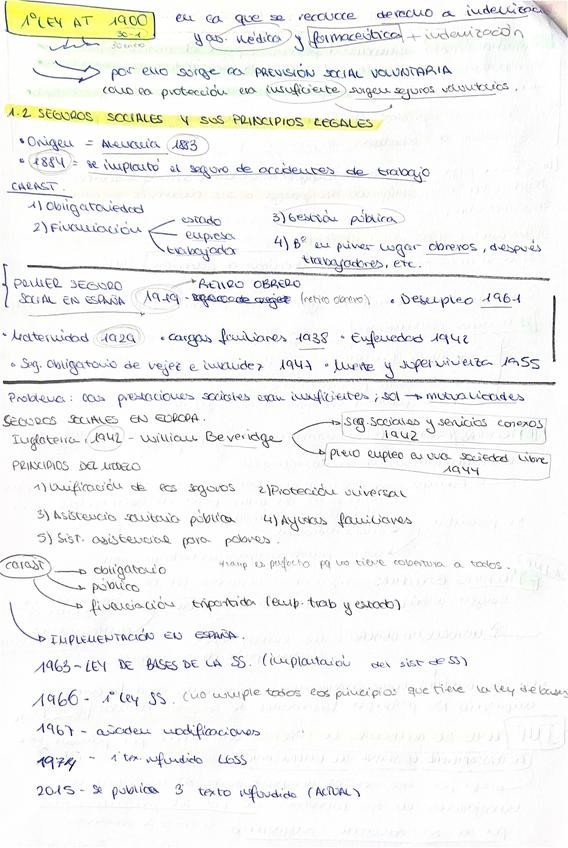 1ª LEY AT 1900
30-1
30 enero
en la que se reconoce derecho a indemnizac
y as. médica y farmacéutica + indemnización
por ello surge la PREVISIÓN SOCIAL VOLUNTARIA
como la protección era insuficiente surgen seguros voluntarios.
1.2 SEGUROS SOCIALES Y SUS PRINCIPIOS LEGALES
• Origen = Alemania 1883
• 1884 = se implantó el seguro de accidentes de trabajo
CARAST.
1) Obligatoriedad
2) Financiación
estado
empresa
trabajador
3) Gestión pública
4) Bº en primer lugar obreros, después
trabajadores, etc.
PRIMER SEGURO
SOCIAL EN ESPAÑA
1919 - (retiro obrero)
RETIRO OBRERO
• Desempleo 1961
• Maternidad 1929 • cargas familiares 1938 • Enfermedad 1942
• Seg. obligatorio de vejez e invalidez 1947 • Muerte y supervivencia 1955
Problema: las prestaciones sociales eran insuficientes; sol → mutualidades
SEGUROS SOCIALES EN EUROPA.
Inglaterra, 1942 - William Beveridge
seg. sociales y servicios conexos
1942
pleno empleo en una sociedad libre
1944
PRINCIPIOS DEL MODELO
1) Unificación de los seguros 2) Protección universal
3) Asistencia sanitaria pública 4) Ayudas familiares
5) Sist. asistencial para pobres.
carast
obligatorio
público
financiación tripartida (emp. trab y estado)
tamp es perfecto pq no tiene cobertura a todos.
IMPLEMENTACIÓN EN ESPAÑA.
1963 - LEY DE BASES DE LA SS. (implantación del sist de SS)
1966 - 1º Ley SS. (no cumple todos los principios que tiene la ley de bases
1967 - añaden modificaciones
1974 - 1 tex. refundido LGSS
2015 - se publica 3º texto refundido (ACTUAL)